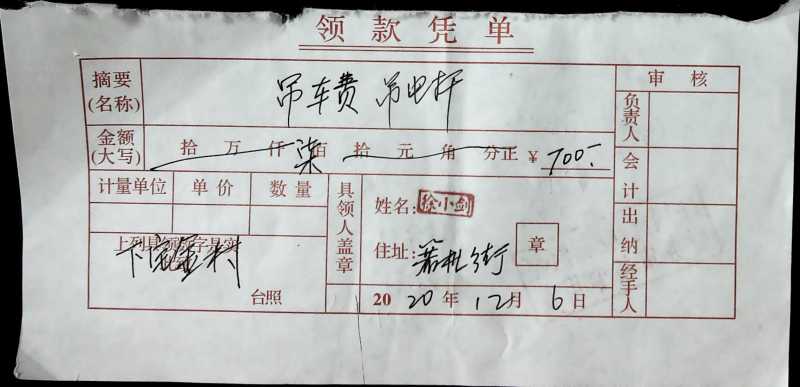 领款凭单
摘要(名称) 吊车费 吊电杆 审核
金额(大写) 拾 万 仟 柒 佰 拾 元 角 分正 ¥700.- 负责人
计量单位 单价 数量 具领人盖章 姓名: 徐小剑 会计
上列具领 字是实 住址: 街 章 出纳
台照 2020年12月6日 经手人